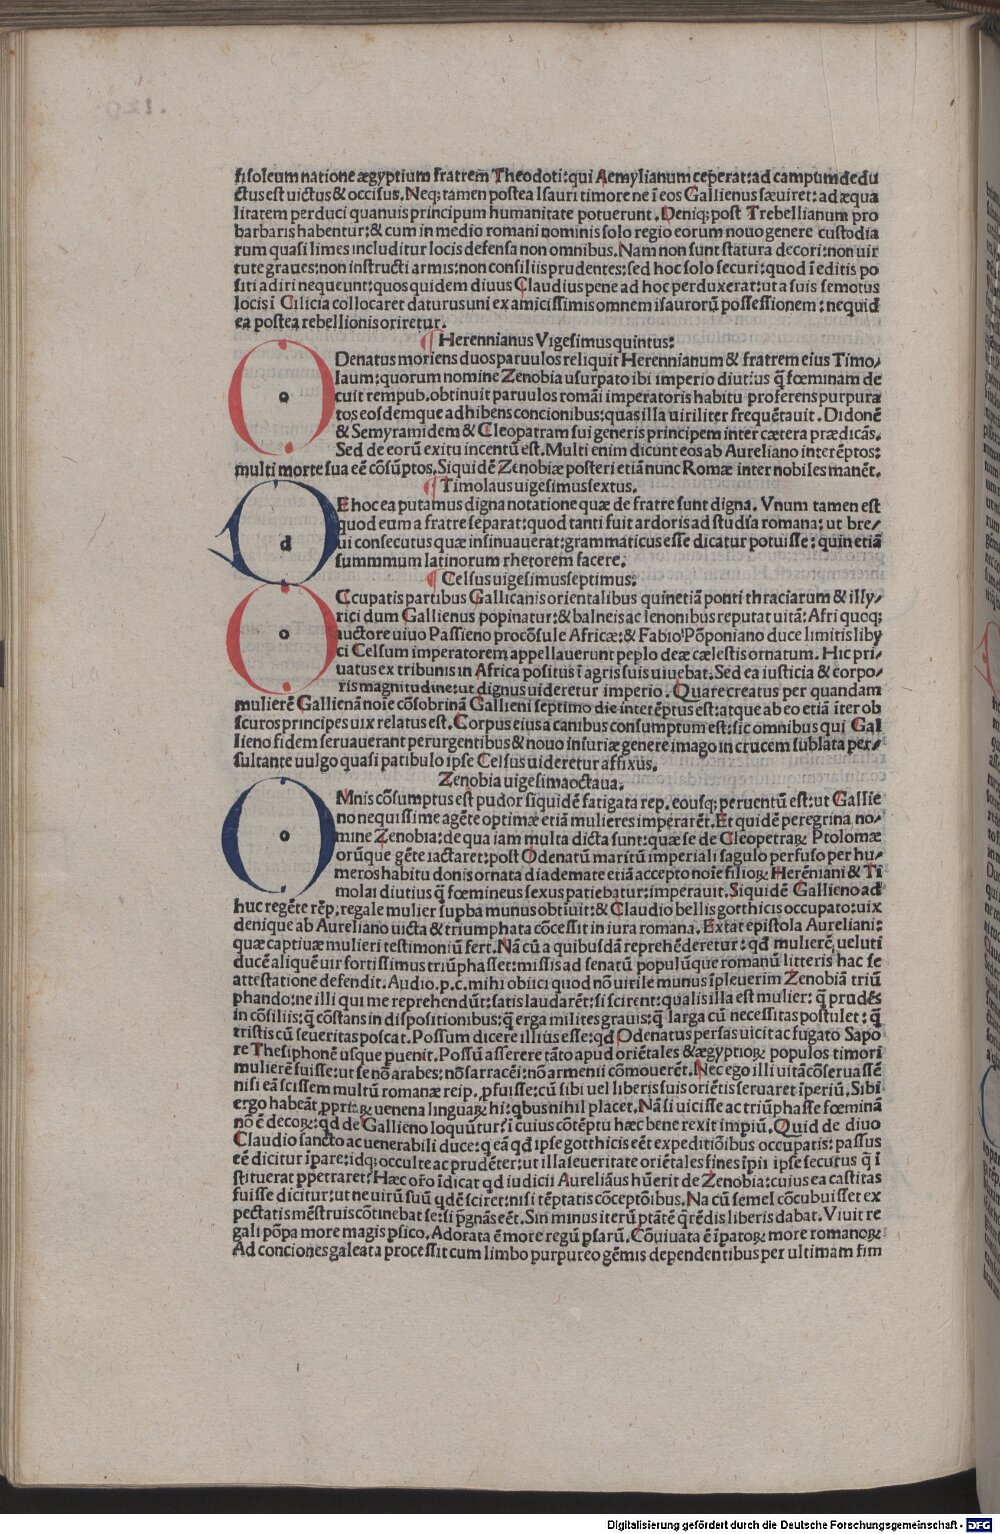 fisoleum natione ægyptium fratrem̄ Theodoti: qui Aemylianum ceperat: ad campum dedu
ctus est uictus & occisus. Neq; tamen postea Isauri timore ne ī eos Gallienus sæuiret: ad æqua
litatem perduci quanuis principum humanitate potuerunt. Deniq; post Trebellianum pro
barbaris habentur: & cum in medio romani nominis solo regio eorum nouo genere custodia
rum quasi limes includitur locis defensa non omnibus. Nam non sunt statura decori: non uir
tute graues: non instructi armis: non consiliis prudentes: sed hoc solo securi: quod ī editis po
siti adiri nequeunt: quos quidem diuus Claudius pene ad hoc perduxerat: ut a suis semotus
locis ī Cilicia collocaret daturus uni ex amicissimis omnem isaurorū possessionem: nequid
ea postea rebellionis oriretur.
¶ Herennianus Vigesimusquintus:
o Denatus moriens duos paruulos reliquit Herennianum & fratrem eius Timo/
laum: quorum nomine Zenobia usurpato ibi imperio diutius q̄ fœminam de
cuit rempub. obtinuit paruulos romāi imperatoris habitu proferens purpura
tos eosdemque adhibens concionibus: quas illa uiriliter frequētauit. Didonē
& Semyramidem & Cleopatram sui generis principem inter cætera prædicās.
Sed de eorū exitu incentū est. Multi enim dicunt eos ab Aureliano interēptos:
multi morte sua eē cōsūptos. Siquidē Zenobiæ posteri etiā nunc Romæ inter nobiles manēt.
¶ Timolaus uigesimussextus.
d E hoc ea putamus digna notatione quæ de fratre sunt digna. Vnum tamen est
quod eum a fratre separat: quod tanti fuit ardoris ad studia romana: ut bre/
ui consecutus quæ insinuauerat: grammaticus esse dicatur potuisse: quin etiā
summmum latinorum rhetorem facere.
¶ Celsus uigesimusseptimus:
o Ccupatis partibus Gallicanis orientalibus quinetiā ponti thraciarum & illy/
rici dum Gallienus popinatur: & balneis ac lenonibus reputat uitā: Afri quoq;
auctore uiuo Passieno procōsule Africæ: & Fabio Pōponiano duce limitis liby
ci Celsum imperatorem appellauerunt peplo deæ cælestis ornatum. Hic pri/
uatus ex tribunis in Africa positus ī agris suis uiuebat. Sed ea iusticia & corpo/
ris magnitudine: ut dignus uideretur imperio. Quare creatus per quandam
mulierē Gallienā noīe cōsobrinā Gallieni septimo die interēptus est: atque ab eo etiā īter ob
scuros principes uix relatus est. Corpus eius a canibus consumptum est: sic omnibus qui Gal
lieno fidem seruauerant perurgentibus & nouo iniuriæ genere imago in crucem sublata per/
sultante uulgo quasi patibulo ipse Celsus uideretur affixus.
Zenobia uigesimaoctaua.
o Mnis cōsumptus est pudor siquidē fatigata rep. eousq; peruentū est: ut Gallie
no nequissime agēte optimæ etiā mulieres imperarēt. Et quidē peregrina no/
mine Zenobia: de qua iam multa dicta sunt: quæ se de Cleopetraꝝ Ptolomæ
orūque gēte iactaret: post Odenatū maritū imperiali sagulo perfuso per hu/
meros habitu donis ornata diademate etiā accepto noīe filioꝝ Herēniani & Ti
molai diutius q̄ fœmineus sexus patiebatur: imperauit. Siquidē Gallieno ad
huc regēte rēp. regale mulier supba munus obtiuit: & Claudio bellis gotthicis occupato: uix
denique ab Aureliano uicta & triumphata cōcessit in iura romana. Extat epistola Aureliani:
quæ captiuæ mulieri testimoniū fert. Nā cū a quibusdā reprehēderetur: qd mulierē ueluti
ducē aliquē uir fortissimus triūphasset: missis ad senatū populūque romanū litteris hac se
attestatione defendit. Audio. p. c. mihi obiici quod nō uirile munus īpleuerim Zenobiā triū
phando: ne illi qui me reprehendūt: satis laudarēt: si scirent: qualis illa est mulier: q̄ prudēs
in cōsiliis: q̄ cōstans in dispositionibus: q̄ erga milites grauis: q̄ larga cū necessitas postulet: q̄
tristis cū seueritas poscat. Possum dicere illius esse: qd Odenatus persas uicit ac fugato Sapo
re Thesiphonē usque puenit. Possū asserere tāto apud oriētales & ægyptioꝝ populos timori
mulierē fuisse: ut se nō arabes: nō sarracēi: nō armenii cōmouerēt. Nec ego illi uitā cōseruassē
nisi eā scissem multū romanæ reip. pfuisse: cū sibi uel liberis suis oriētis seruaret īperiū. Sibi
ergo habeāt ppriaꝝ uenena linguaꝝ hi: qbus nihil placet. Nā si uicisse ac triūphasse fœminā
nō ē decoꝝ: qd de Gallieno loquūtur? ī cuius cōtēptu hæc bene rexit impiū. Quid de diuo
Claudio sancto ac uenerabili duce: q eā qd ipse gotthicis eēt expeditiōibus occupatis: passus
eē dicitur īpare: idq; occulte ac prudēter: ut illa seueritate oriētales fines īpii ipse securus q̄ ī
stituerat ppetraret? Hæc oro īdicat qd iudicii Aureliāus hūerit de Zenobia: cuius ea castitas
fuisse dicitur: ut ne uirū suū qdē sciret: nisi tēptatis cōceptōibus. Na cū semel cōcubuisset ex
pectatis mēstruis cōtinebat se: si p̄gnās eēt. Sin minus iterū ptātē q̄rēdis liberis dabat. Viuit re
gali pōpa more magis psico. Adorata ē more regū psarū. Cōuiuata ē īpatoꝝ more romanoꝝ
Ad conciones galeata processit cum limbo purpureo gēmis dependentibus per ultimam fim
Digitalisierung gefördert durch die Deutsche Forschungsgemeinschaft - DFG